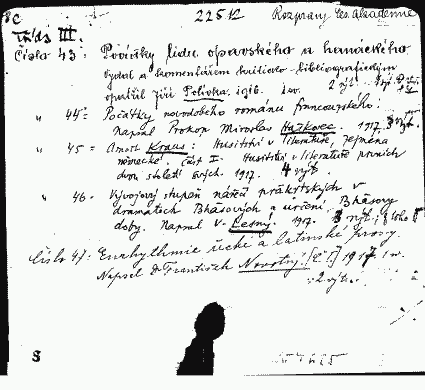 8c 22512 Rozpravy čes. akademie
Třída III.
Číslo 43: Počátky lidu opavského a hanáckého
vydal a komentářem kriticko-bibliografickým
opatřil Jiří Polívka. 1916. 1 sv. 2 výt.
" 44: Počátky novodobého románu francouzského:
napsal Prokop Miroslav Haškovec. 1917. 3 výt.
" 45 = Arnošt Kraus: Husitství v literatuře, zejména
německé. Část I. Husitství v literatuře prvních
dvou století svých. 1917. 4 výt.
" 46. Vývojový stupeň nářečí prákrtských v
dramatech Bhāsových a určení Bhāsovy
doby. Napsal V. Lesný. 1917. 3 výt.
Číslo 47: Eurhythmie řecké a latinské prosy.
Napsal Dr František Novotný. [Č. I] 1917. 1 sv.
2 výt.
S